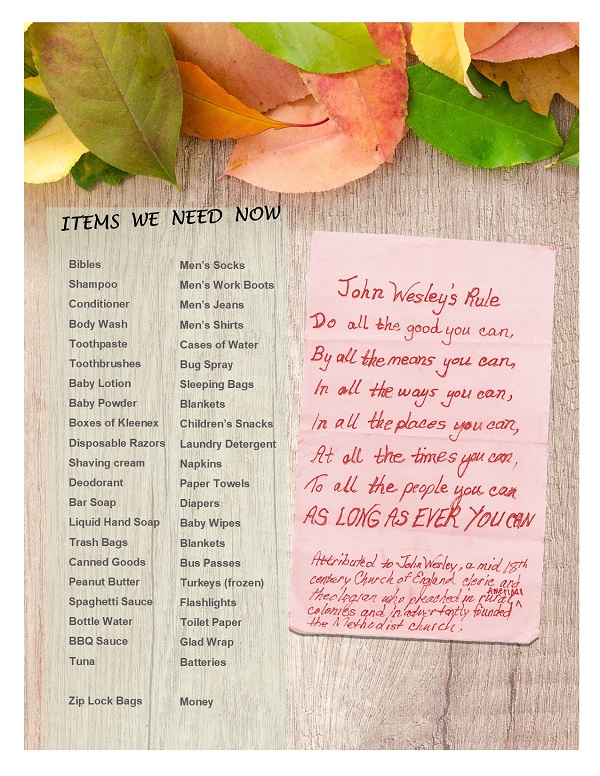 ITEMS WE NEED NOW
Bibles
Shampoo
Conditioner
Body Wash
Toothpaste
Toothbrushes
Baby Lotion
Baby Powder
Boxes of Kleenex
Disposable Razors
Shaving cream
Deodorant
Bar Soap
Liquid Hand Soap
Trash Bags
Canned Goods
Peanut Butter
Spaghetti Sauce
Bottle Water
BBQ Sauce
Tuna
Zip Lock Bags
Men's Socks
Men's Work Boots
Men's Jeans
Men's Shirts
Cases of Water
Bug Spray
Sleeping Bags
Blankets
Children's Snacks
Laundry Detergent
Napkins
Paper Towels
Diapers
Baby Wipes
Blankets
Bus Passes
Turkeys (frozen)
Flashlights
Toilet Paper
Glad Wrap
Batteries
Money
John Wesley's Rule
Do all the good you can,
By all the means you can,
In all the ways you can,
In all the places you can,
At all the times you can,
To all the people you can
AS LONG AS EVER YOU CAN
Attributed to John Wesley, a mid 18th
century Church of England cleric and
theologian who preached in rural American
colonies and inadvertantly founded
the Methodist church.